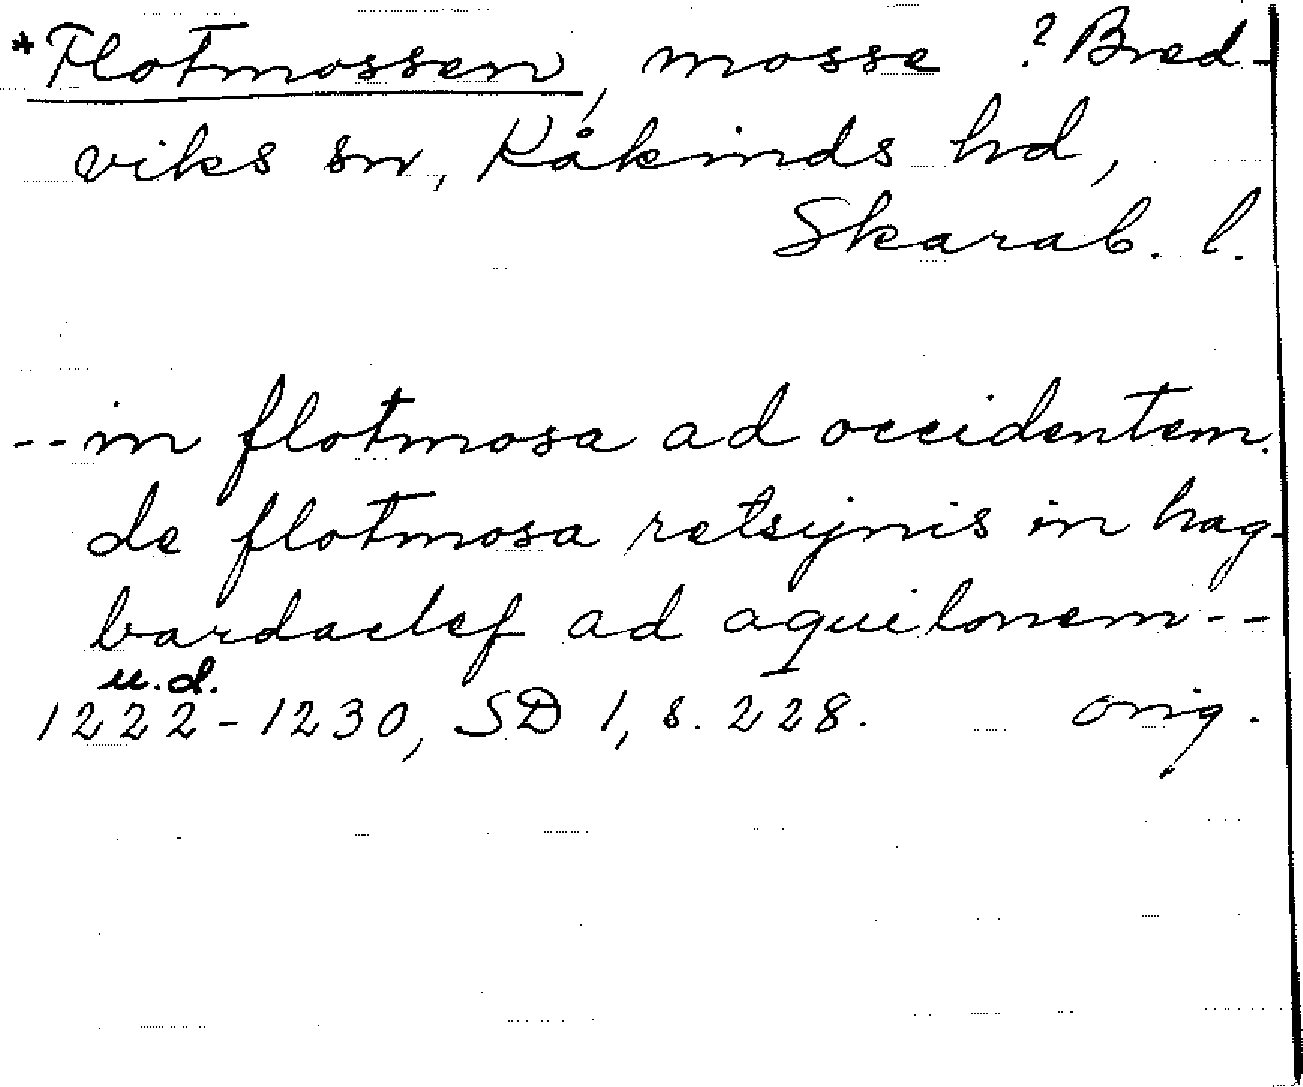 *Flotmossen, mosse ? Bred-
viks sn, Kåkinds hd,
Skarab. l.
-- in flotmosa ad occidentem.
de flotmosa retsijnis in hag-
bardaclef ad aquilonem --
u.d.
1222-1230, SD 1, s. 228. orig.